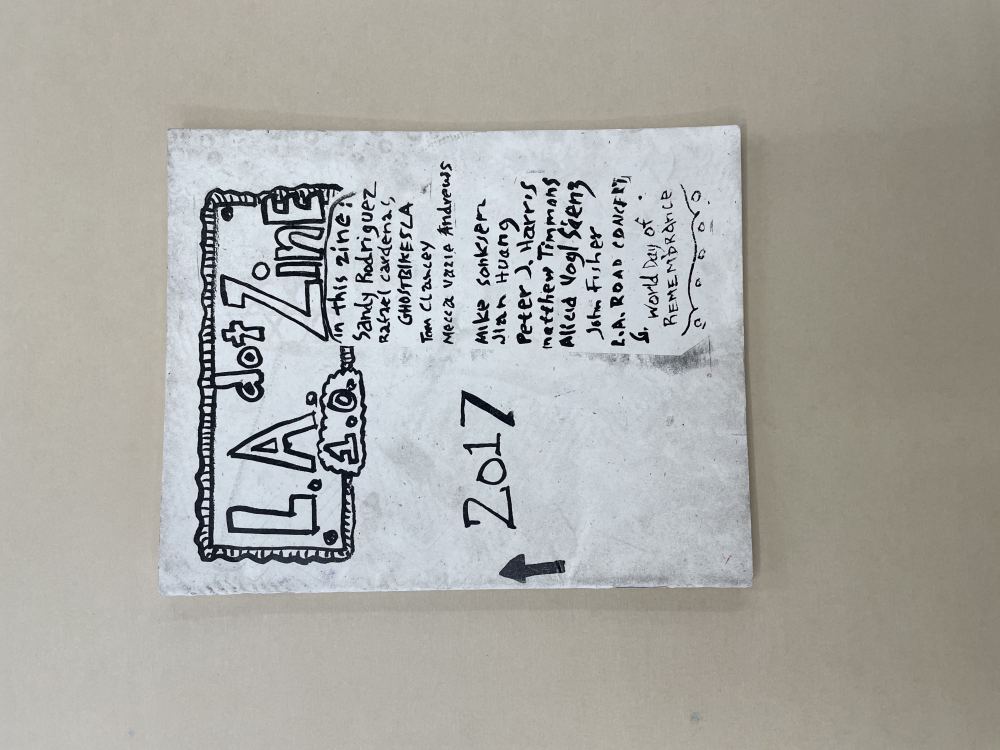 L.A. dot Zine
1.0.
in this zine:
Sandy Rodriguez
Rafael Cardenas
GHOSTBIKESLA
Tom Clancey
Mecca Vazie Andrews
Mike Sonksen
Jian Huang
Peter J. Harris
Matthew Timmons
Allead Vogl Saeng
John Fisher
L.A. ROAD CONCERTS
&
World Day of
REMEMBRANCE
2017